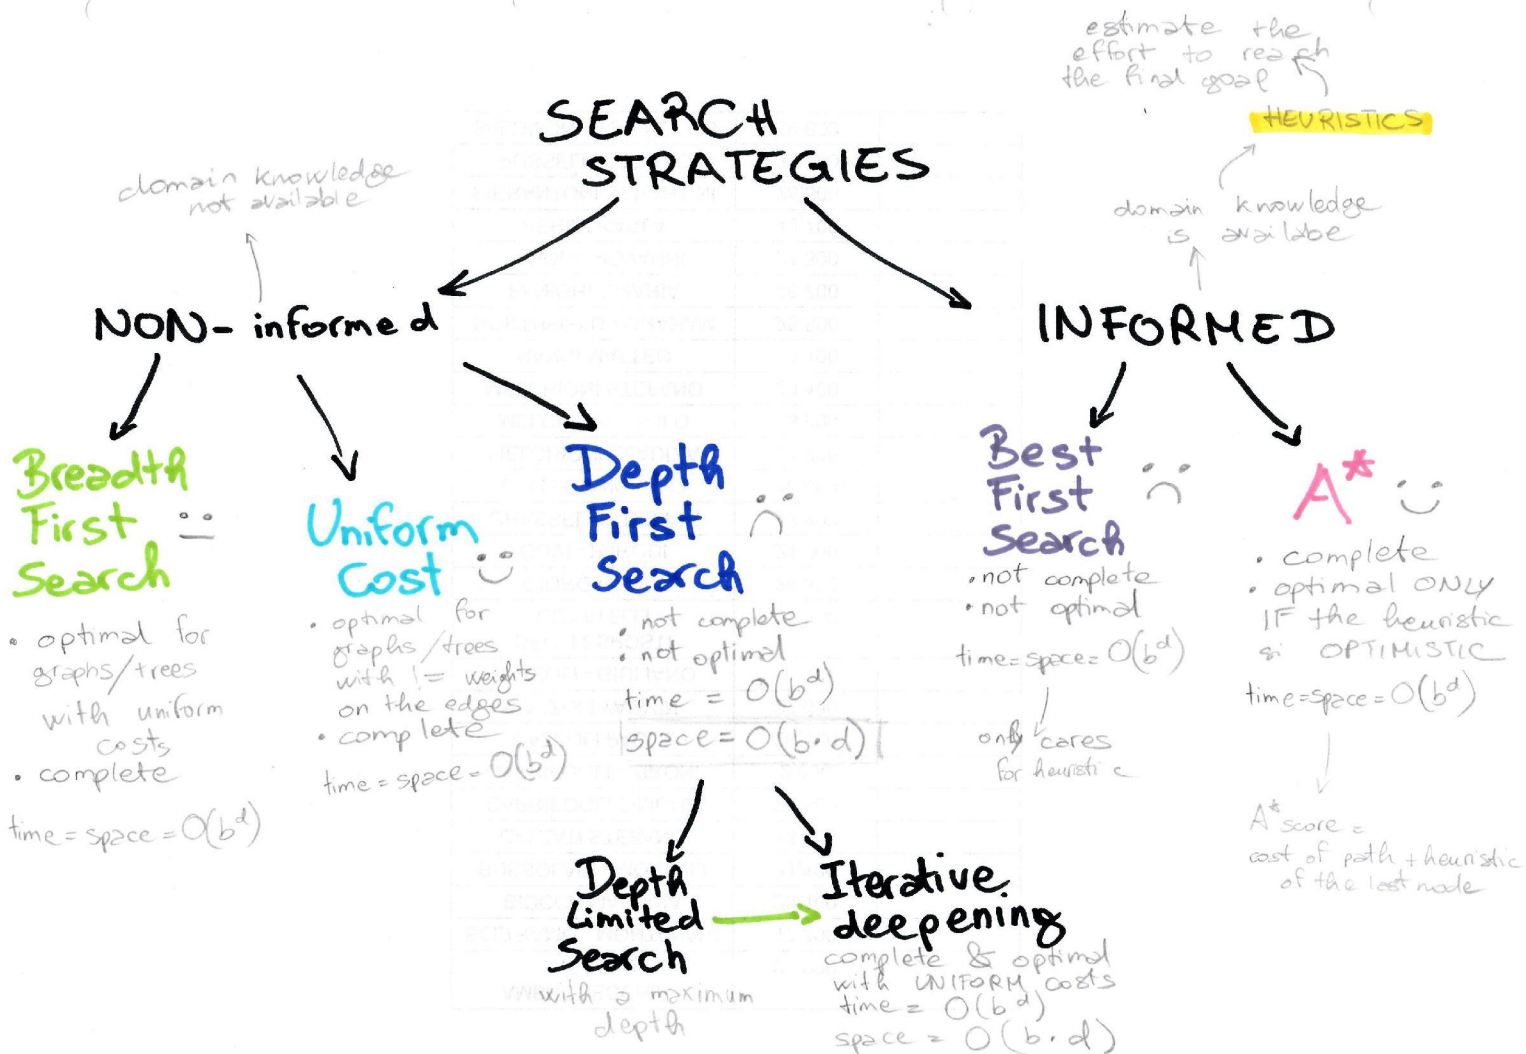 estimate the
effort to reach
the final goal
HEURISTICS
SEARCH
STRATEGIES
domain knowledge
not available
domain knowledge
is availabe
NON- informed
INFORMED
Breadth
First
Search
• optimal for
graphs/trees
with uniform
costs
• complete
time = space = O(b^d)
Uniform
Cost
• optimal for
graphs/trees
with != weights
on the edges
• complete
time = space = O(b^d)
Depth
First
Search
• not complete
• not optimal
time = O(b^d)
space = O(b·d)
Depth
Limited
Search
with a maximum
depth
Iterative
deepening
complete & optimal
with UNIFORM costs
time = O(b^d)
space = O(b·d)
Best
First
Search
• not complete
• not optimal
time=space= O(b^d)
only cares
for heuristic
A*
• complete
• optimal ONLY
IF the heuristic
si OPTIMISTIC
time=space=O(b^d)
A* score =
cost of path + heuristic
of the last node